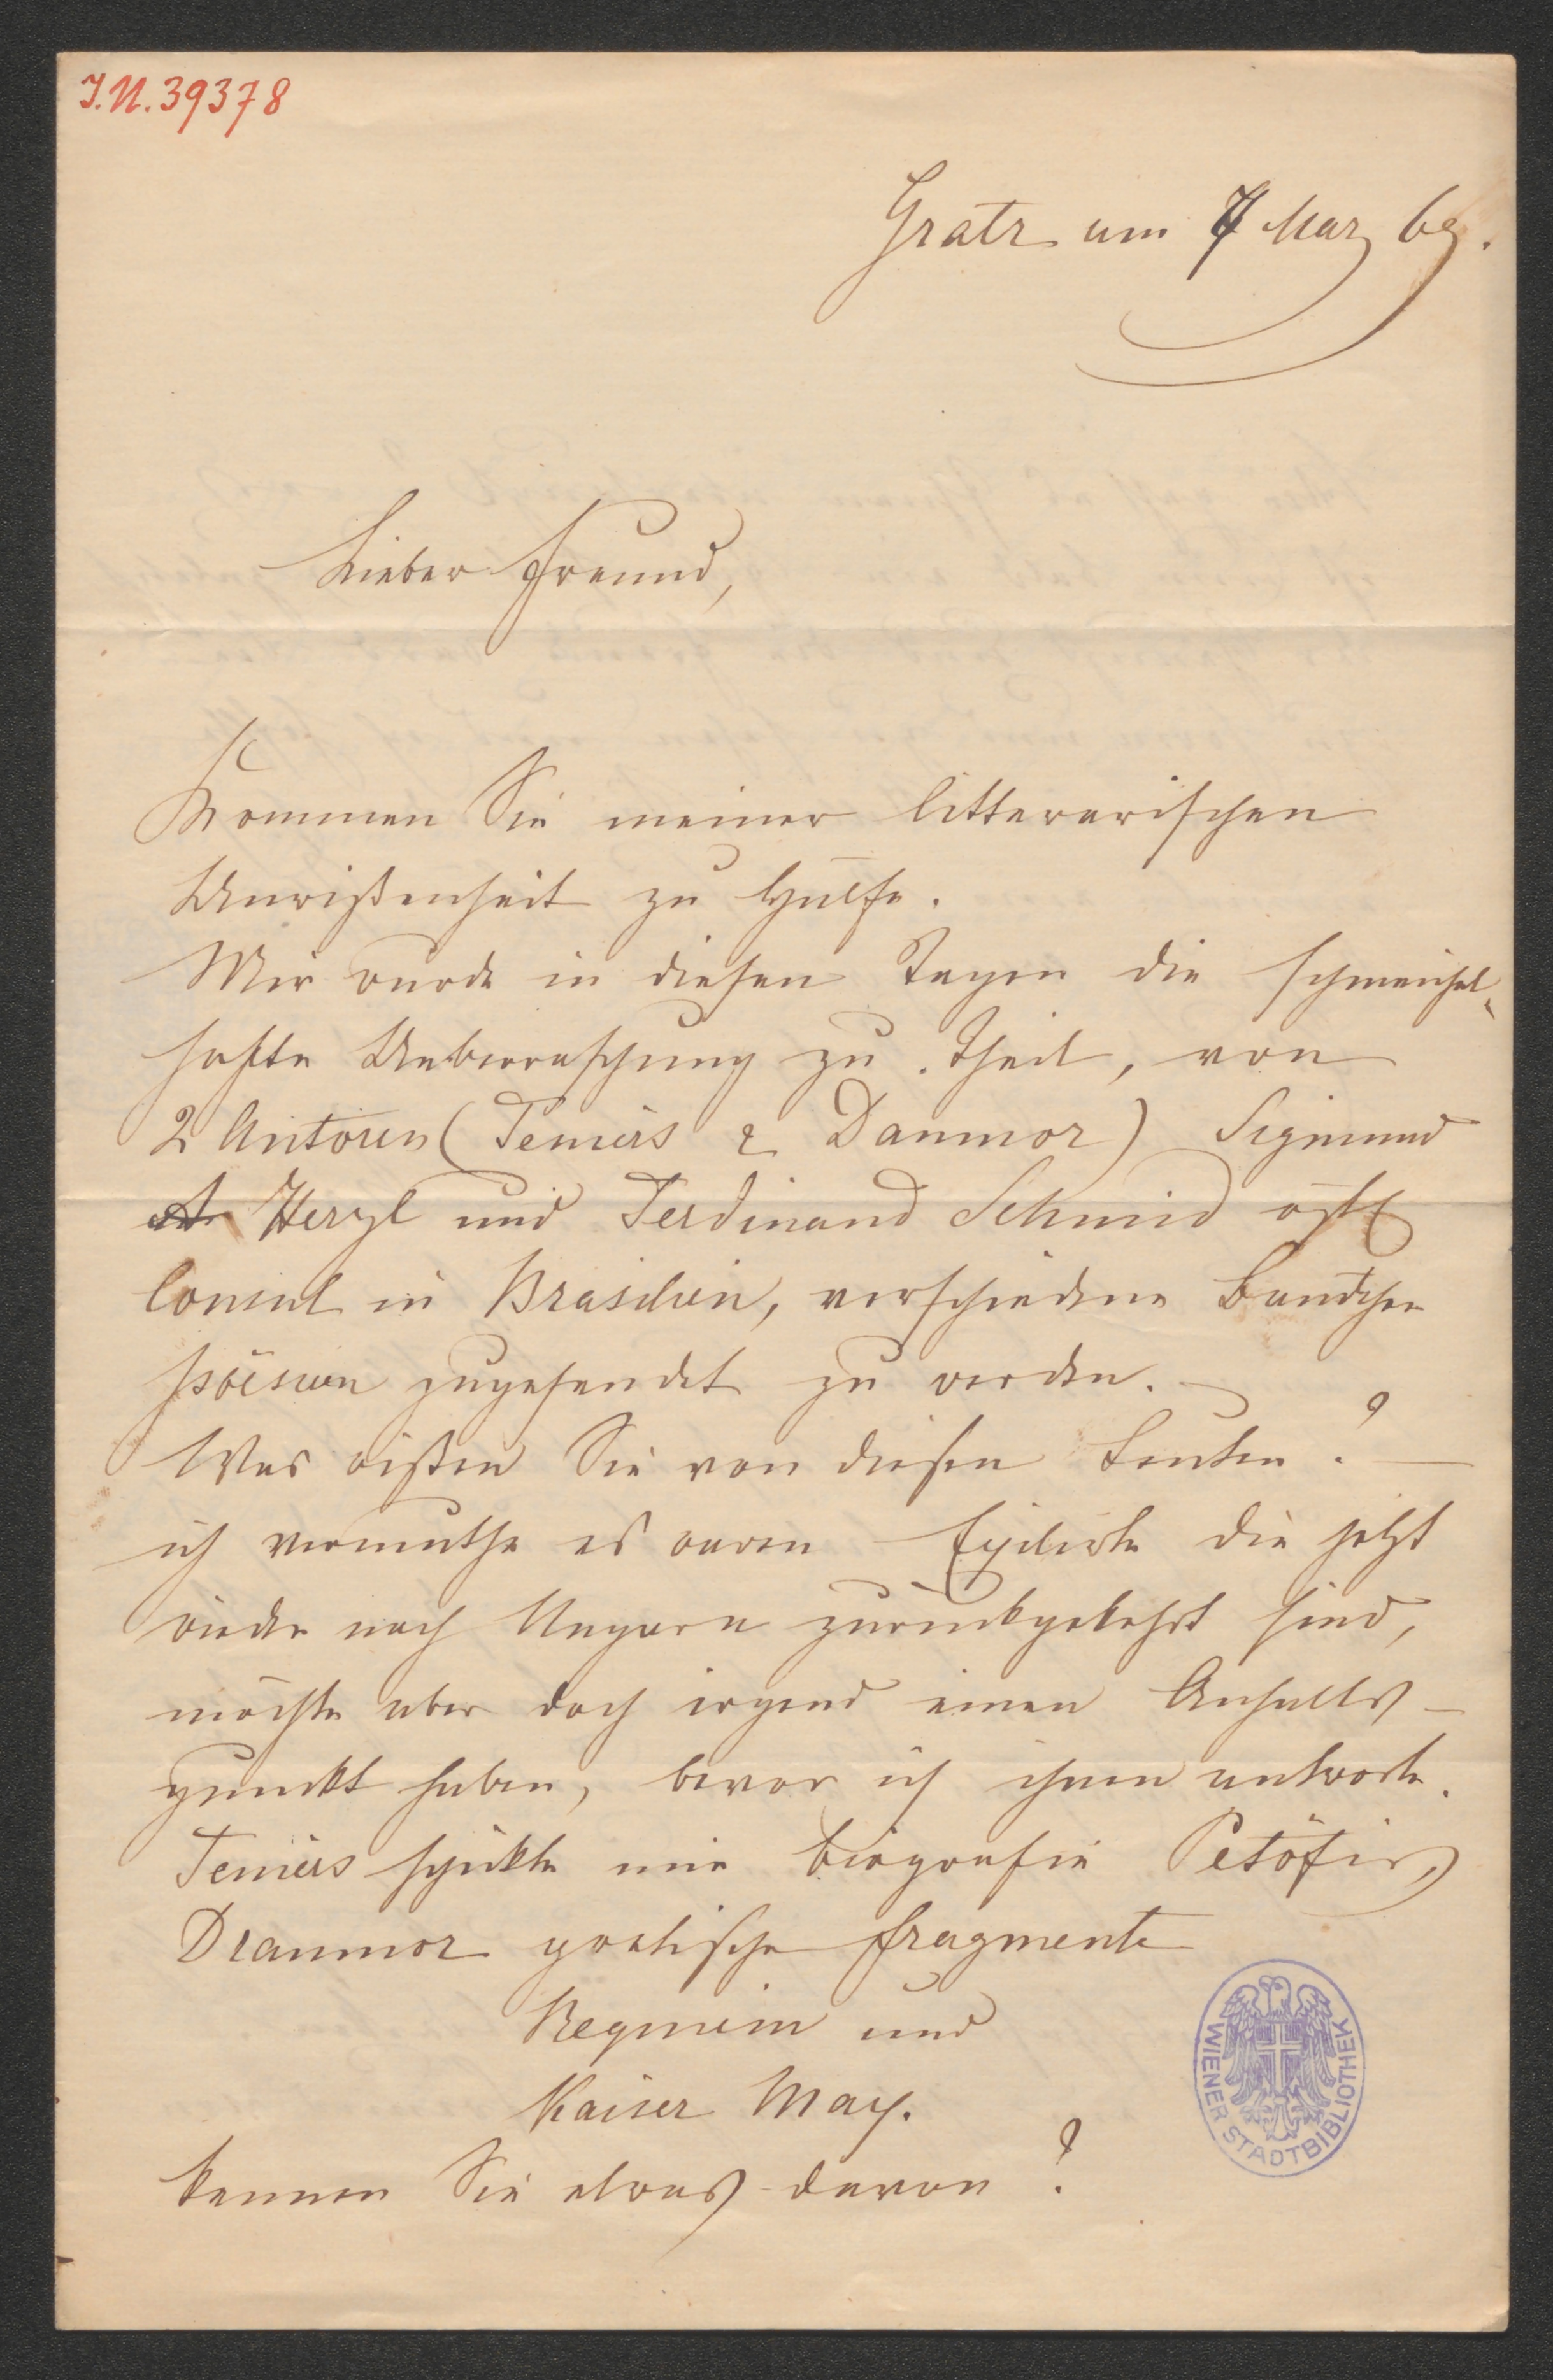 I.N. 39378
Gratz am 7 März 69.
Lieber Freund,
Kommen Sie meiner litterarischen
Unwißenheit zu Hülfe.
Mir wurde in diesen Tagen die schmeichel-
hafte Ueberraschung zu Theil, von
2 Autoren (Teniers & Danmor) Sigmund
Herzl und Ferdinand Schmid östr
Consul in Brasilien, verschiedene Bändchen
Poësien zugesendet zu werden. –
Was wißen Sie von diesen Leuten? –
ich vermuthe es waren Exilirte die jetzt
wieder nach Ungarn zurückgekehrt sind,
möchte aber doch irgend einen Anhalts-
punckt haben, bevor ich ihnen antworte.
Teniers schickte mir Biografie Petöfis,
Dranmor poetische Fragmente
Requiem und
Kaiser Max.
kennen Sie etwas davon?
WIENER STADTBIBLIOTHEK